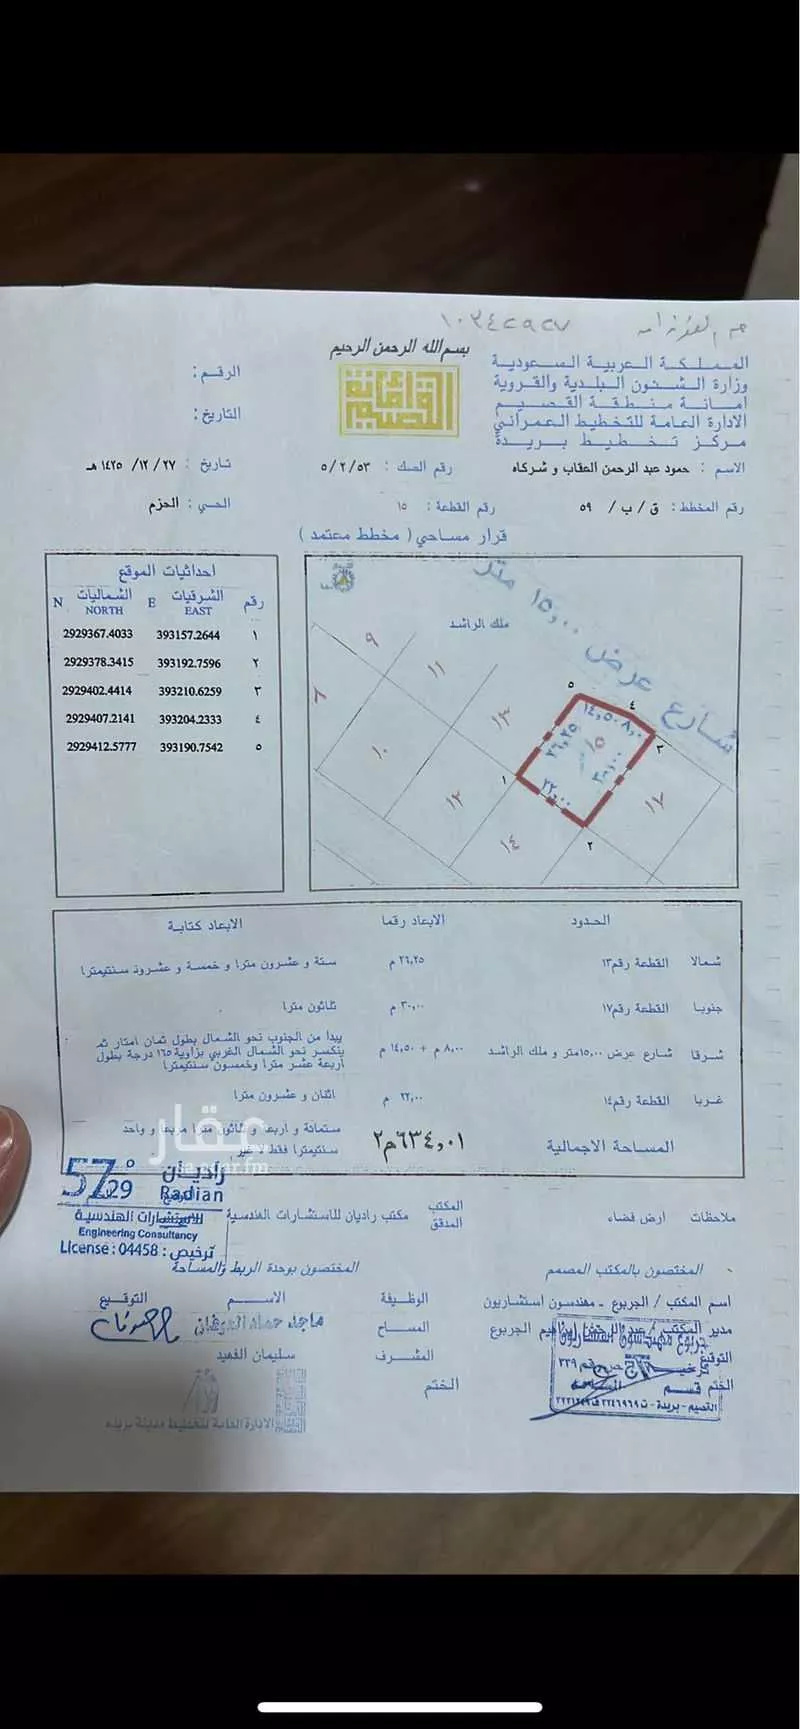 ١٠٣٤٢٩٢٧
بسم الله الرحمن الرحيم
المملكة العربية السعودية
وزارة الشئون البلدية والقروية
امانة منطقة القصيم
الادارة العامة للتخطيط العمراني
مركز تخطيط بريدة
الرقم :
التاريخ :
الاسم : حمود عبد الرحمن العقاب و شركاه
رقم الصك : ٥/٢/٥٣
تاريخ : ٢٧/ ١٢/ ١٤٢٥ هـ
رقم المخطط : ق / ب / ٥٩
رقم القطعة : ١٥
الحي : الحزم
قرار مساحي ( مخطط معتمد )
احداثيات الموقع
رقم الشرقيات E الشماليات N
EAST NORTH
١ 393157.2644 2929367.4033
٢ 393192.7596 2929378.3415
٣ 393210.6259 2929402.4414
٤ 393204.2333 2929407.2141
٥ 393190.7542 2929412.5777
شارع عرض ١٥,٠٠ متر
ملك الراشد
٩
١١
١٣
٨
١٠
١٢
١٤
١٥
١٧
١٤,٥٠
٨,٠٠
٢٦,٢٥
٣٠,٠٠
٢٢,٠٠
١
٢
٣
٤
٥
الحدود الابعاد رقما الابعاد كتابة
شمالا القطعة رقم١٣ ٢٦,٢٥ م ستة و عشرون مترا و خمسة و عشرون سنتيمترا
جنوبا القطعة رقم١٧ ٣٠,٠٠ م ثلاثون مترا
شرقا شارع عرض ١٥,٠٠متر و ملك الراشد ٨,٠٠ م + ١٤,٥٠ م يبدا من الجنوب نحو الشمال بطول ثمان امتار ثم
ينكسر نحو الشمال الغربي بزاوية ١٦٥ درجة بطول
اربعة عشر مترا وخمسون سنتيمترا
غربا القطعة رقم١٤ ٢٢,٠٠ م اثنان و عشرون مترا
المساحة الاجمالية ٦٣٤,٠١م٢ ستمائة و اربعة و ثلاثون مترا مربعا و واحد
سنتيمترا فقط لا غير
عقار
aqar.fm
57°29 راديان
Radian
للاستشارات الهندسية
Engineering Consultancy
License : 04458 : ترخيص
ملاحظات ارض فضاء
المكتب المدقق مكتب راديان للاستشارات الهندسية
المختصون بالمكتب المصمم
المختصون بوحدة الربط والمساحة
اسم المكتب / الجربوع - مهندسون استشاريون
الوظيفة الاســم التوقيع
المساح
المشرف سليمان الفهيد
الختم
التوقيع
الختم
الادارة العامة لتخطيط مدينة بريده